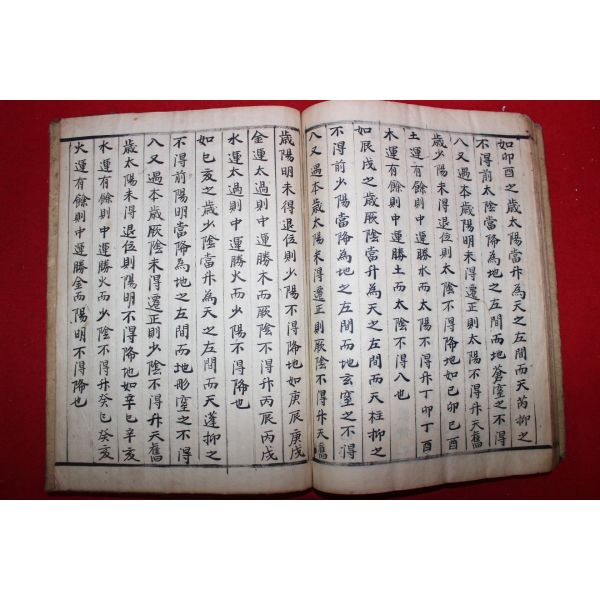 如卯酉之歳太陽當升為天之左間而天芮抑之
不得前太陰當降為地之左間而地蒼窒之不得
入又過本歳陽明未得遷正則太陽不得升天舊
歳少陽未得退位則太陰不得降地如己卯己酉
土運有餘則中運勝水而太陽不得升丁卯丁酉
木運有餘則中運勝土而太陰不得入也
如辰戌之歳厥陰當升為天之左間而天柱抑之
不得前少陽當降為地之左間而地玄窒之不得
入又過本歳太陽未得遷正則厥陰不得升天舊
歳陽明未得退位則少陽不得降地如庚辰庚戌
金運太過則中運勝木而厥陰不得升丙辰丙戌
水運太過則中運勝火而少陽不得降也
如巳亥之歳少陰當升為天之左間而天蓬抑之
不得前陽明當降為地之左間而地彤窒之不得
入又過本歳厥陰未得遷正則少陰不得升天舊
歳太陽未得退位則陽明不得降地如辛巳辛亥
水運有餘則中運勝火而少陰不得升癸巳癸亥
火運有餘則中運勝金而陽明不得降也